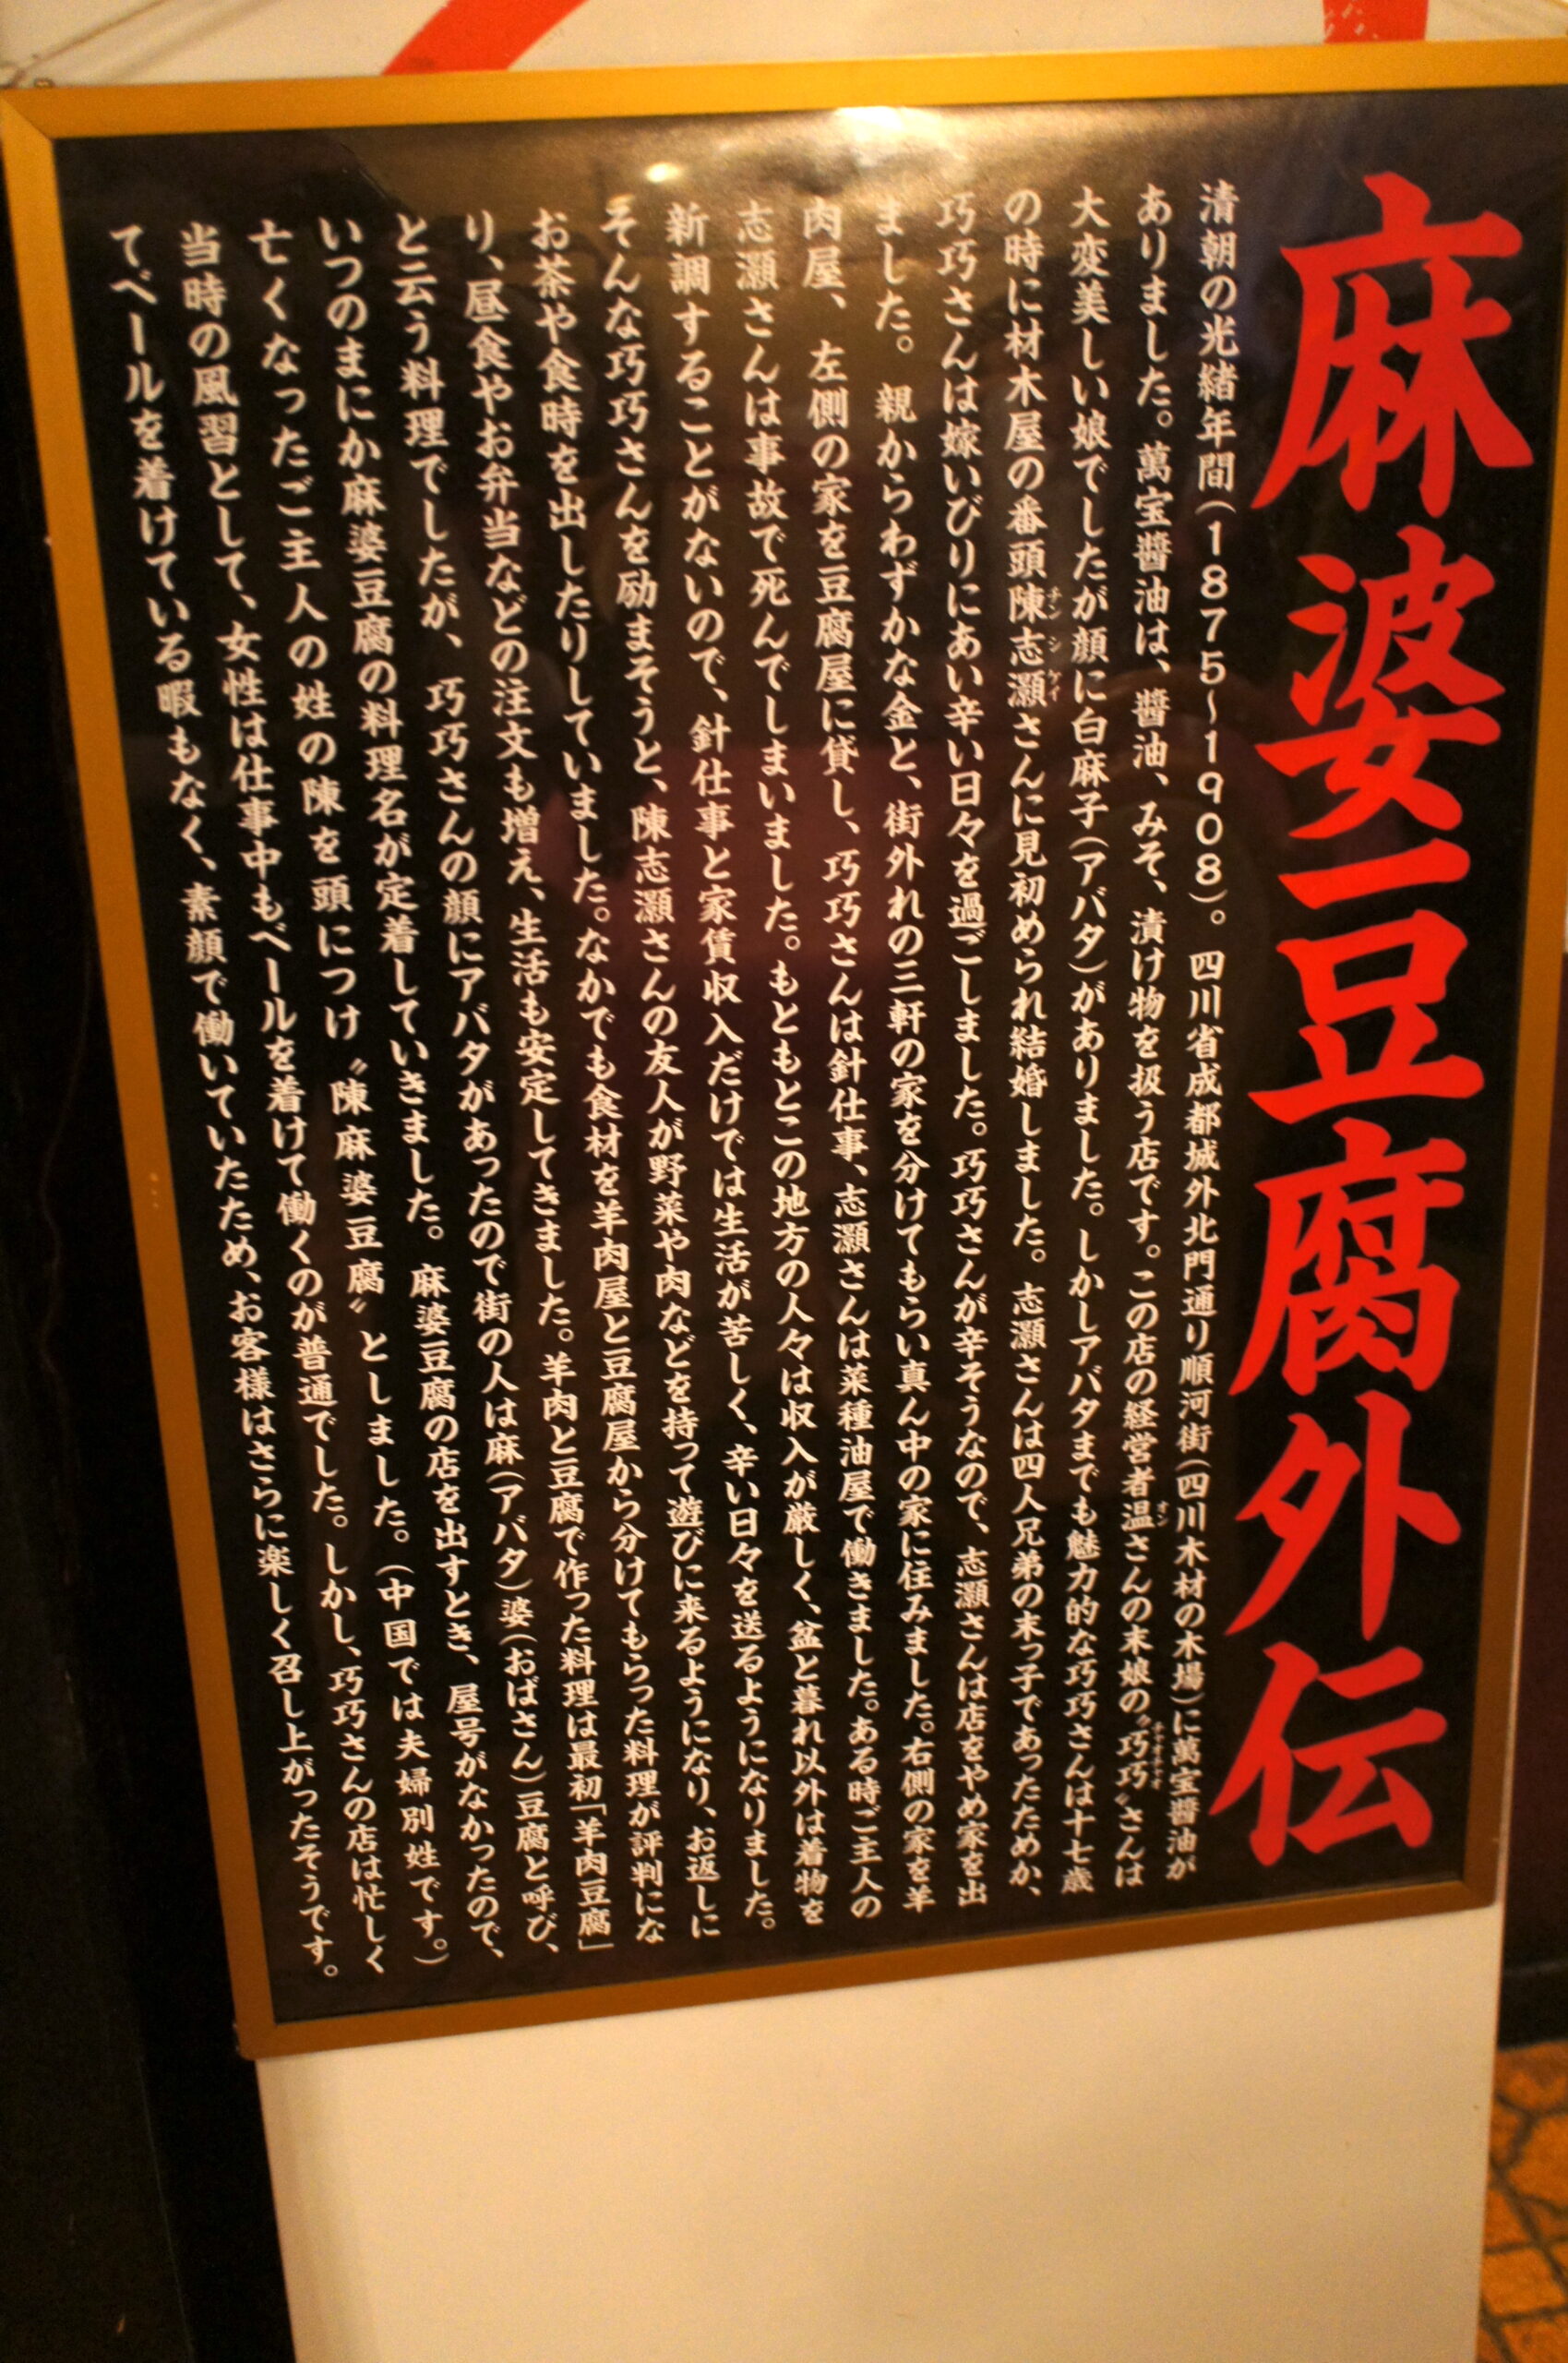 麻婆豆腐外伝
清朝の光緒年間(1875~1908)。四川省成都城外北門通り順河街(四川木材の木場)に萬宝醬油が
ありました。萬宝醬油は、醬油、みそ、漬け物を扱う店です。この店の経営者温さんの末娘の〝巧巧〟さんは
大変美しい娘でしたが顔に白麻子(アバタ)がありました。しかしアバタまでも魅力的な巧巧さんは十七歳
の時に材木屋の番頭陳志灝さんに見初められ結婚しました。志灝さんは四人兄弟の末っ子であったためか、
巧巧さんは嫁いびりにあい辛い日々を過ごしました。巧巧さんが辛そうなので、志灝さんは店をやめ家を出
ました。親からわずかな金と、街外れの三軒の家を分けてもらい真ん中の家に住みました。右側の家を羊
肉屋、左側の家を豆腐屋に貸し、巧巧さんは針仕事、志灝さんは菜種油屋で働きました。ある時ご主人の
志灝さんは事故で死んでしまいました。もともとこの地方の人々は収入が厳しく、盆と暮れ以外は着物を
新調することがないので、針仕事と家賃収入だけでは生活が苦しく、辛い日々を送るようになりました。
そんな巧巧さんを励まそうと、陳志灝さんの友人が野菜や肉などを持って遊びに来るようになり、お返しに
お茶や食時を出したりしていました。なかでも食材を羊肉屋と豆腐屋から分けてもらった料理が評判にな
り、昼食やお弁当などの注文も増え、生活も安定してきました。羊肉と豆腐で作った料理は最初「羊肉豆腐」
と云う料理でしたが、巧巧さんの顔にアバタがあったので街の人は麻(アバタ)婆(おばさん)豆腐と呼び、
いつのまにか麻婆豆腐の料理名が定着していきました。麻婆豆腐の店を出すとき、屋号がなかったので、
亡くなったご主人の姓の陳を頭につけ〝陳麻婆豆腐〟としました。(中国では夫婦別姓です。)
当時の風習として、女性は仕事中もベールを着けて働くのが普通でした。しかし、巧巧さんの店は忙しく
てベールを着けている暇もなく、素顔で働いていたため、お客様はさらに楽しく召し上がったそうです。